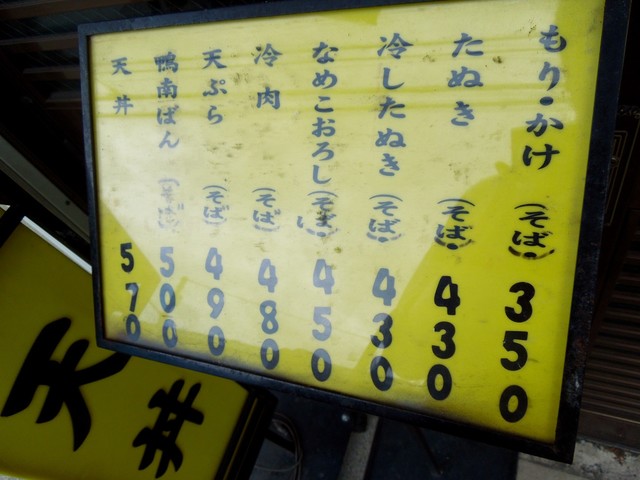 もり・かけ（そば）350
たぬき（そば）430
冷したぬき（そば）430
なめこおろし（そば）450
冷肉（そば）480
天ぷら（そば）490
鴨南ばん（そば）500
天丼 570
天丼